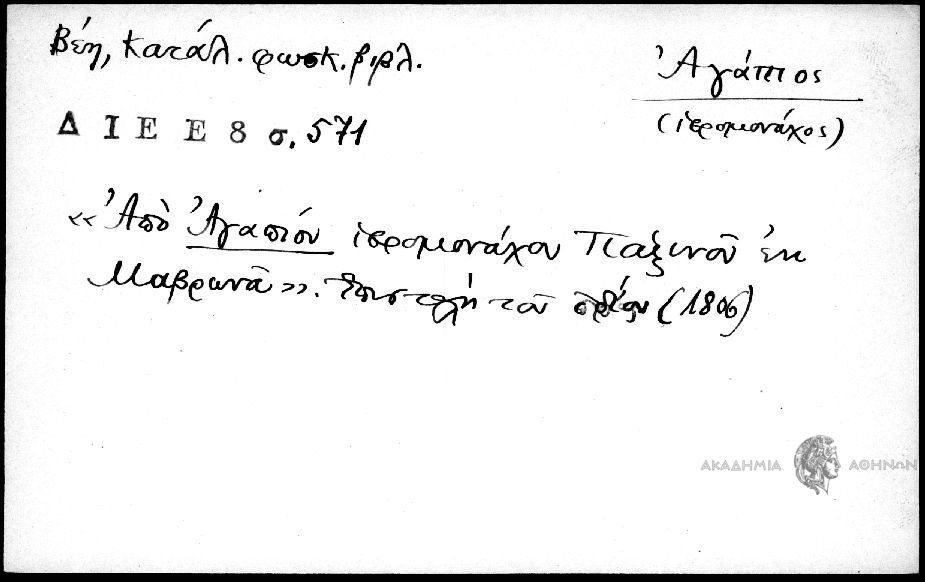 Βέη, Κατάλ. φωσκ. βιβλ.
Ἀγάπιος
(ἱερομονάχος)
Δ Ι Ε Ε 8 σ. 571
«Ἀπὸ Ἀγαπίου ἱερομονάχου Παξινοῦ ἐκ
Μαβρωνᾶ». Ἐπιστολὴ τοῦ (1806)
ΑΚΑΔΗΜΙΑ ΑΘΗΝΩΝ